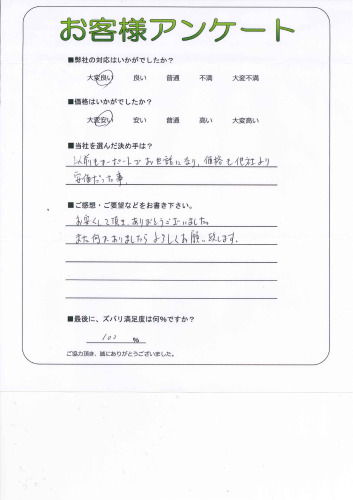 お客様アンケート
■弊社の対応はいかがでしたか？
大変良い 良い 普通 不満 大変不満
■価格はいかがでしたか？
大変安い 安い 普通 高い 大変高い
■当社を選んだ決め手は？
以前もオーダーでお世話になり、価格も他社より
安価だった事。
■ご感想・ご要望などをお書き下さい。
お安くして頂き、ありがとうございました。
また何かありましたらよろしくお願い致します。
■最後に、ズバリ満足度は何％ですか？
100 ％
ご協力頂き、誠にありがとうございました。